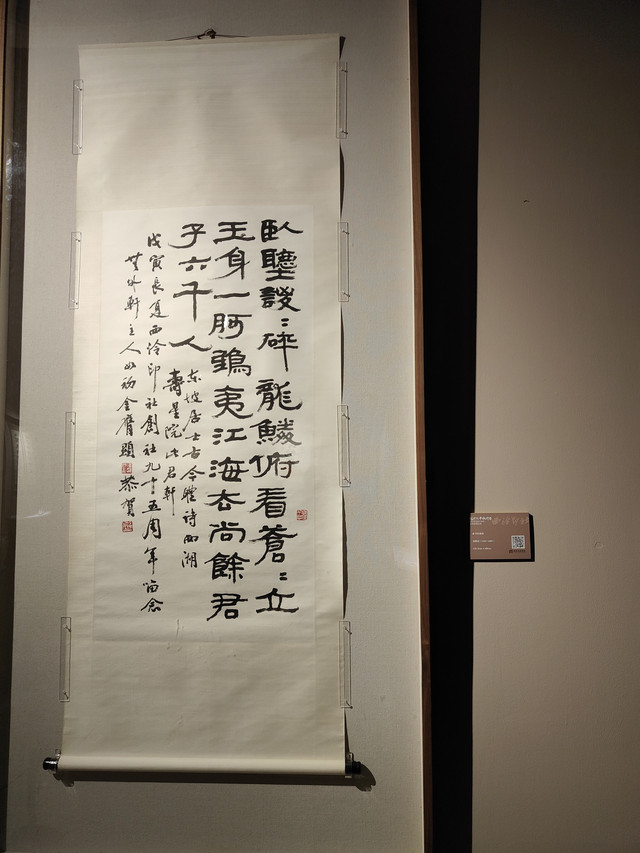 臥聽謖〻碎龍鱗俯看蒼〻立
玉身一舸鴟夷江海去尚餘君
子六千人
東坡居士古今體詩西湖
壽星院此君軒
戊寅長夏西泠印社創社九十五周年留念
無外軒主人如初金膺顯恭賀